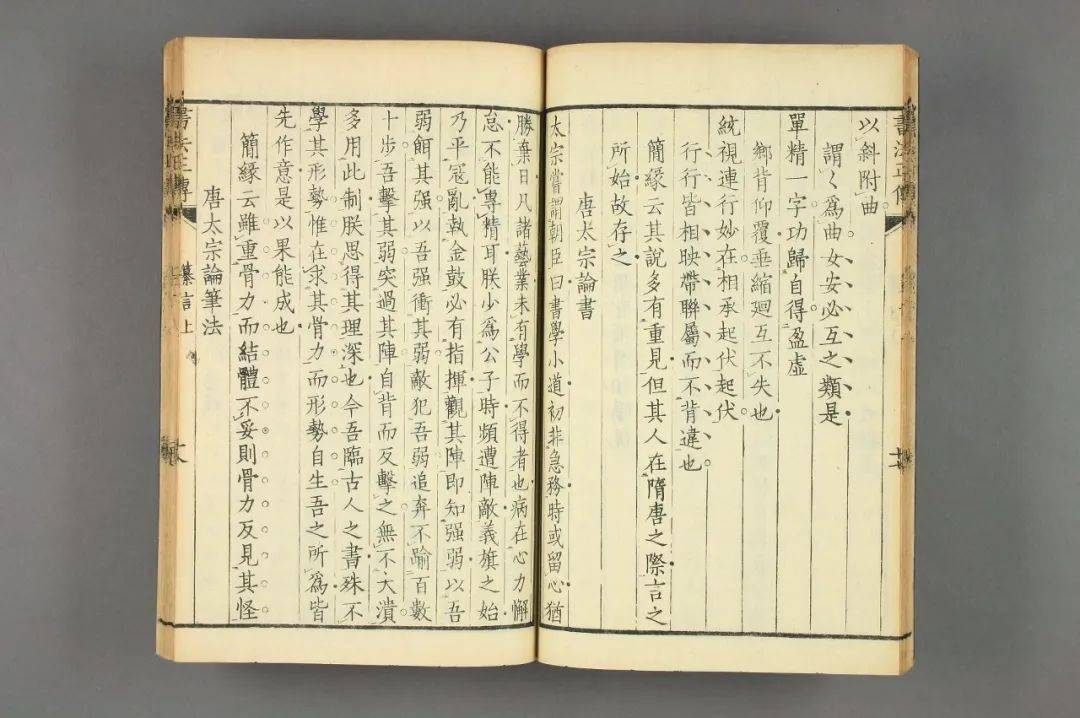 書法正傳
以斜附曲
謂く爲曲女安必互之類是
單精一字功歸自得盈虛
鄉背仰覆垂縮廻互不失也
統視連行妙在相承起伏起伏
行行皆相映帶聯屬而不背違也
簡緣云其說多有重見但其人在隋唐之際言之
所始故存之
唐太宗論書
太宗嘗謂朝臣曰書學小道初非急務時或留心猶
勝棄日凡諸藝業未有學而不得者也病在心力懈
怠不能專精耳朕少爲公子時頻遭陣敵義旗之始
乃平寇亂執金鼓必有指揮觀其陣即知强弱以吾
弱餌其强以吾强衝其弱敵犯吾弱追奔不踰百數
十步吾擊其弱突過其陣自背而反擊之無不大潰
多用此制朕思得其理深也今吾臨古人之書殊不
學其形勢惟在求其骨力而形勢自生吾之所爲皆
先作意是以果能成也
簡緣云雖重骨力而結體不妥則骨力反見其怪
唐太宗論筆法
書法正傳
纂言上